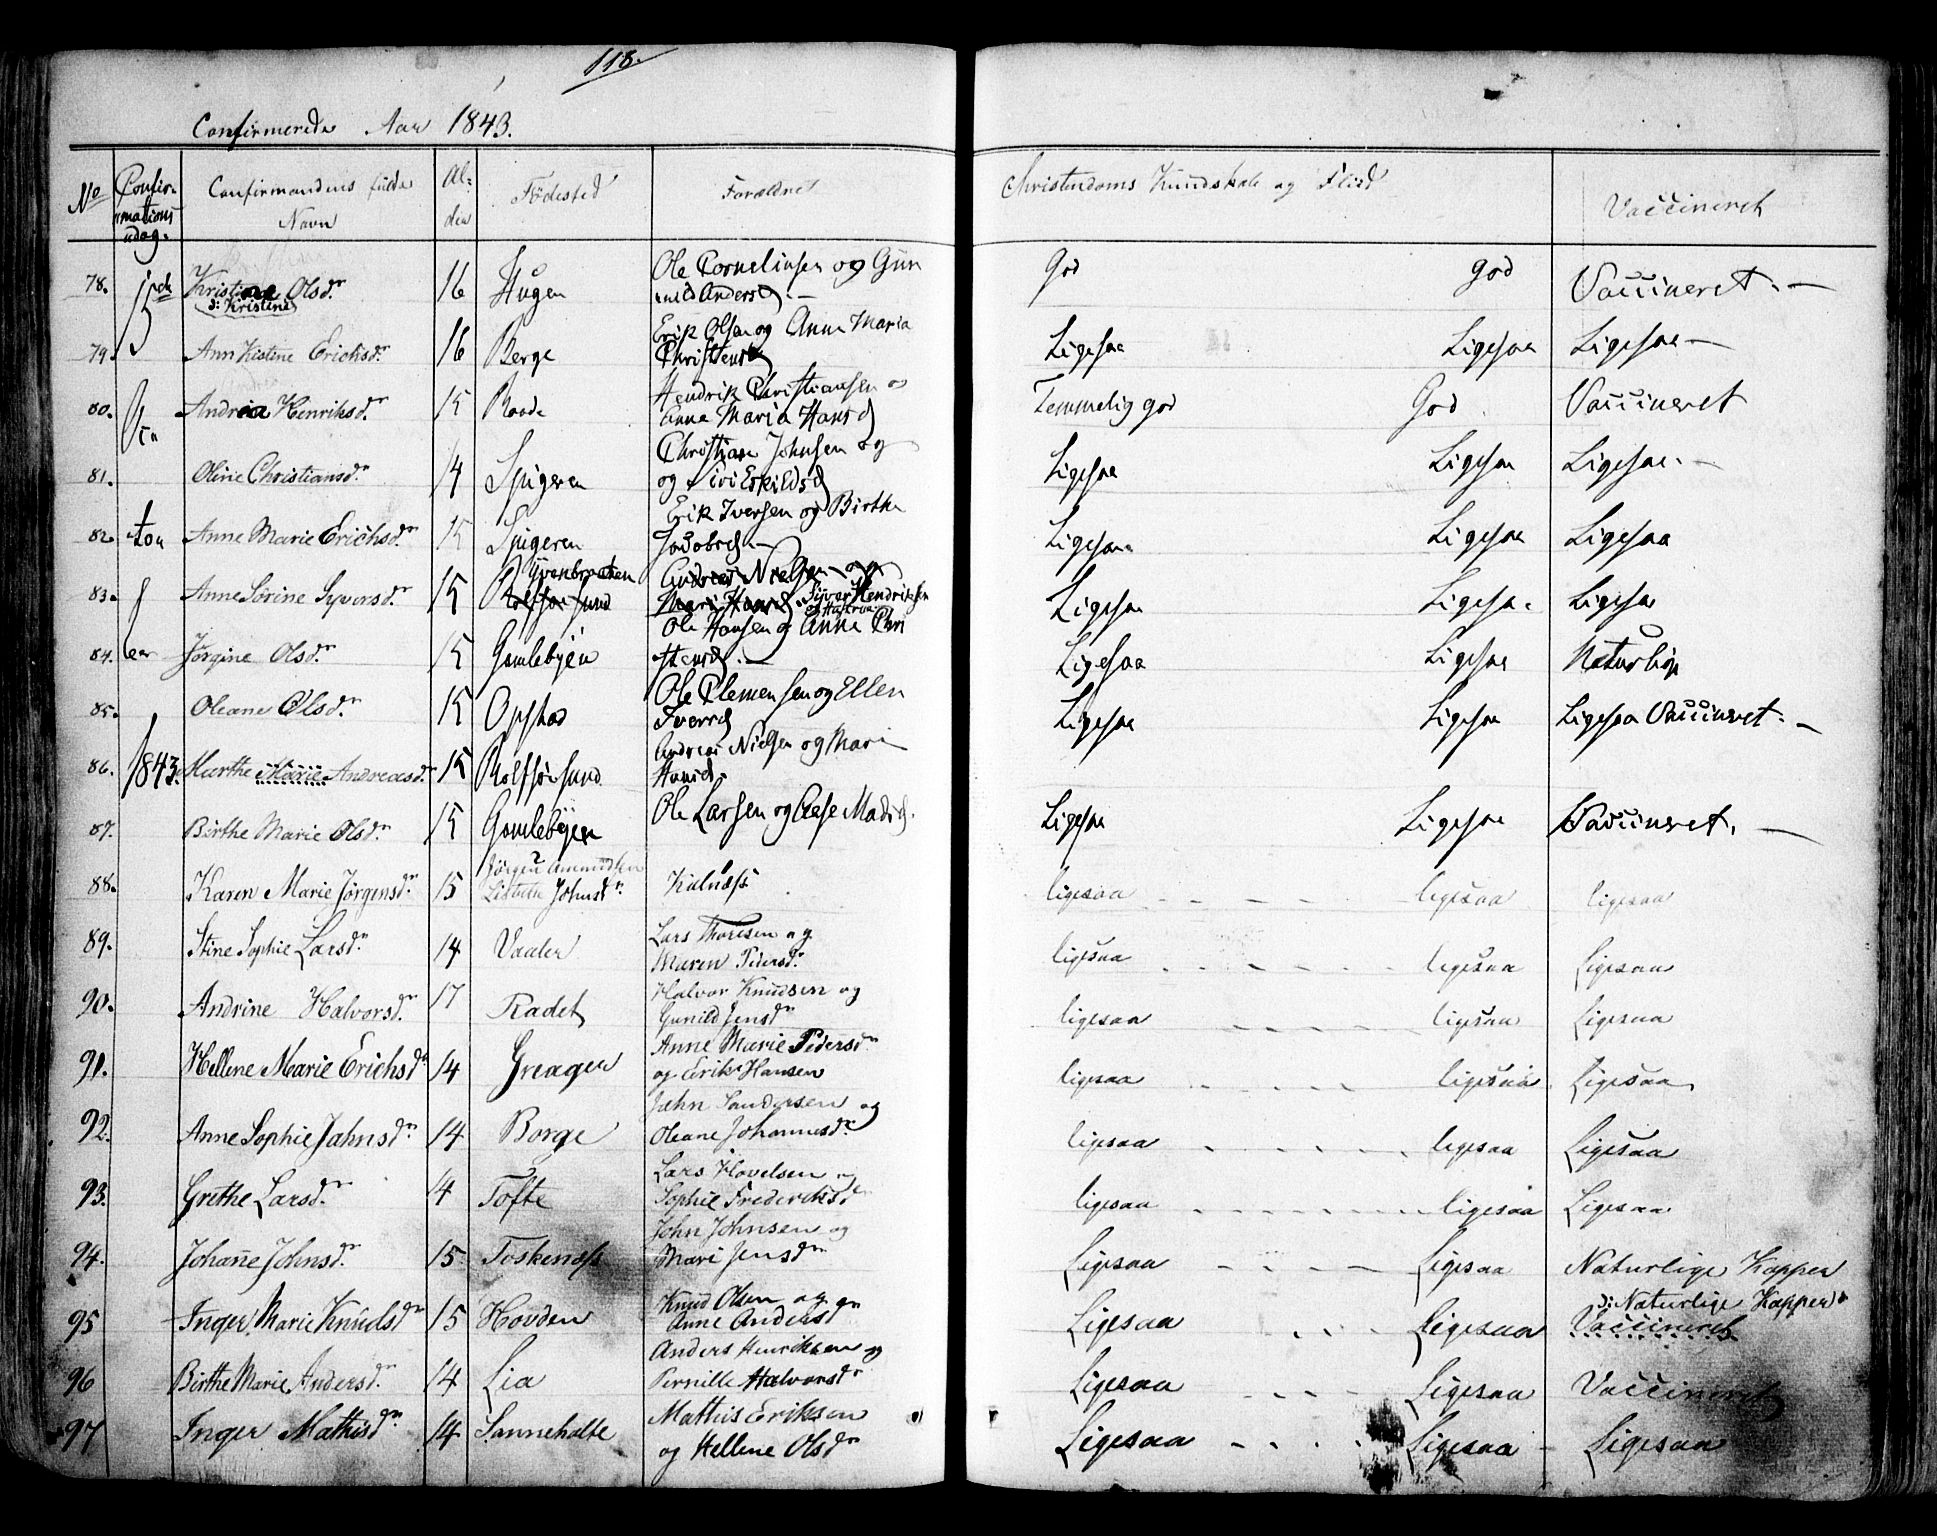 118.
Confirmerede Aar 1843.
No Confirmations dag. Confirmandens fulde Navn Alder Födested Forældre Christendoms Kundskab og Flid Vaccineret
78. Kristine Olsdr. 16 Hugen Ole Corneliusen og Gun God god Vaccineret. —
ↄ: Kristine nild Andersd. —
79. Ann Kistine Erichsdr. 16 Berge Erik Olsen og Anne Maria Ligesaa Ligesaa Ligesaa —
Christensd
80. Andrea Henriksdr. 15 Roade Hendrik Christiansen o Temmelig god God Vaccineret
Anna Maria Hansd
81. Oline Christiansdr. 14 Spigeren Christian Johnsen og Ligesaa Ligesaa Ligesaa. —
og Sivi Eskildsd
82. Anne Marie Erichsdr. 15 Spigeren Erik Iversen og Birthe Ligesaa Ligesaa Ligesaa
Jacobsd. —
83. Anne Sörine Syversdr. 15 Rolfsösund Andreas Nielsen og Ligesaa Ligesaa. Ligesaa
Mari Hansd. Syver Hendriksen
84. Jörgine Olsdr. 15 Gamlebyen Ole Hansen og Anne Chri Ligesaa Ligesaa Naturlig
stensd. —
85. Oleane Olsdr. 15 Opstad Ole Clemensen og Ellen Ligesaa Ligesaa Ligesaa Vaccineret. —
Iversd
86. 1843. Marthe Marie Andreasd. 15 Rolfsösund Andreas Nielsen og Mari
Hansd.
87. Birthe Marie Olsdr. 15 Gamlebyen Ole Larsen og Aese Madsd. Ligesaa Ligesaa Vaccineret. —
88. Karen Marie Jörgensdr. 15 Jörgen Ammundsen Kalnæss ligesaa ligesaa ligesaa
Lisbeth Johnsdr.
89. Stine Sophie Larsdr. 14 Vaaler Lars Thoresen og ligesaa ligesaa Ligesaa
Maren Pedersdr.
90. Andrine Halvorsdr. 17 Radet Halvor Knudsen og ligesaa ligesaa Ligesaa
Gunild Jensdr
91. Hellene Marie Erichsdr 14 Greager Anne Marie Pedersdr ligesaa ligesaa Ligesaa
og Erik Hansen
92. Anne Sophie Jahnsdr 14 Borge Jahn Sandersen og ligesaa ligesaa Ligesaa
Oleane Johannesdr.
93. Grethe Larsdr. 14 Tofte Lars Hovelsen og ligesaa ligesaa Ligesaa
Sophie Frederiksdr
94. Johane Johnsdr. 15 Toskenæss John Johnsen og Ligesaa Ligesaa Naturlige Kopper
Mari Jensdr
95 Inger Marie Knudsdr 15 Hovden Knud Olsen og Ligesaa Ligesaa ↄ: Naturlige Kopper
Anne Andersdr Vaccineret
96 Birthe Marie Andersdr. 14 Lia Anders Henriksen og Ligesaa Ligesaa Vaccineret
Pernille Halvorsdr
97 Inger Mathisdr. 14 Sanneholte Mathis Eriksen Ligesaa Ligesaa Ligesaa
og Hellene Olsdr